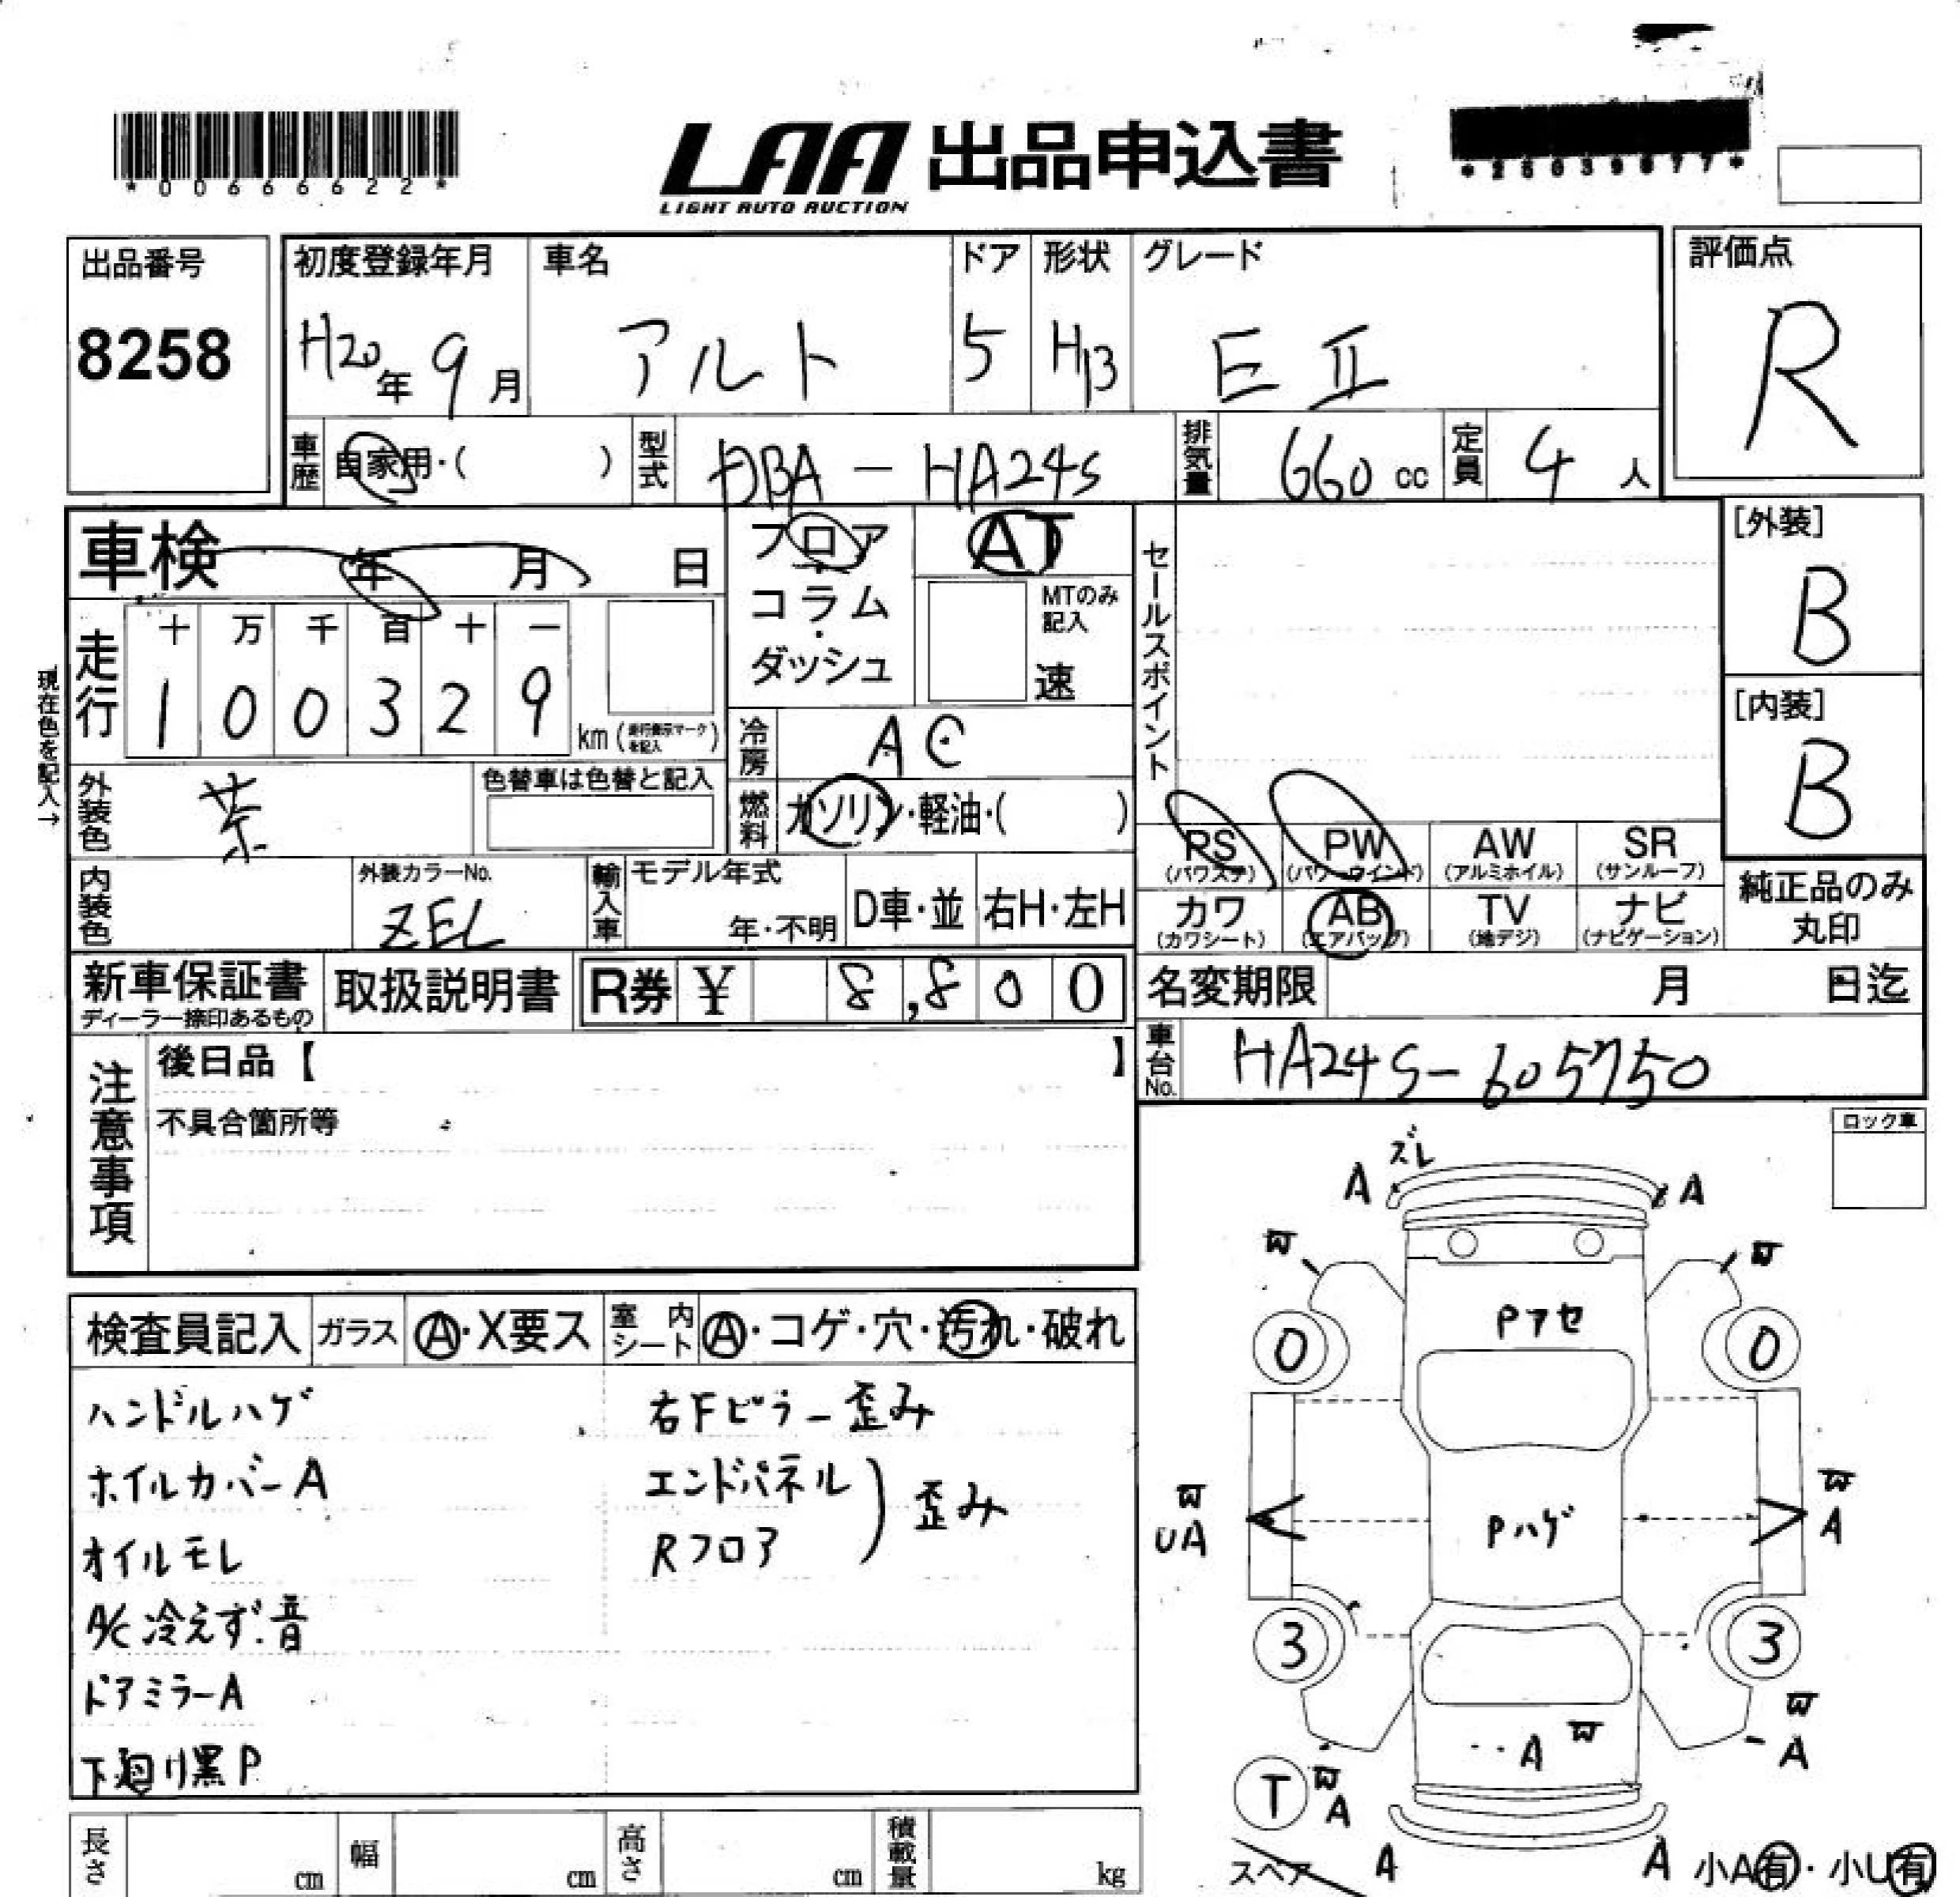 *00666622*
LAA 出品申込書
LIGHT AUTO AUCTION
出品番号
8258
初度登録年月
H20年 9月
車名
アルト
ドア
5
形状
HB
グレード
EⅡ
評価点
R
車歴
自家用・( )
型式
DBA - HA24S
排気量
660 cc
定員
4 人
車検 年 月 日
走行
十 万 千 百 十 一
1 0 0 3 2 9
km
現在色を記入→
フロア
コラム
・
ダッシュ
AT
MTのみ
記入
速
冷房
AC
燃料
ガソリン・軽油・( )
外装色
茶
色替車は色替と記入
内装色
外装カラーNo.
ZEL
輸入車
モデル年式
年・不明
D車・並
右H・左H
セールスポイント
[外装]
B
[内装]
B
PS
(パワステ)
PW
(パワーウインド)
AW
(アルミホイル)
SR
(サンルーフ)
カワ
(カワシート)
AB
(エアバッグ)
TV
(地デジ)
ナビ
(ナビゲーション)
純正品のみ
丸印
新車保証書
ディーラー捺印あるもの
取扱説明書
R券 ¥ 8,800
名変期限 月 日迄
車台No.
HA24S-605750
注意事項
後日品【 】
不具合箇所等
ロック車
検査員記入
ガラス
A・X要ス
室内
シート
A・コゲ・穴・汚れ・破れ
ハンドルハゲ
ホイルカバーA
オイルモレ
A/C冷えず.音
ドアミラーA
下廻り黒P
右Fピラー歪み
エンドパネル
Rフロア
歪み
ズレ
A
A
W
W
Pアセ
0
0
W
UA
Pハゲ
W
A
3
3
W
A
A W
T
W
A
スペア
A
A
小A有・小U有
長さ
cm
幅
cm
高さ
cm
積載量
kg